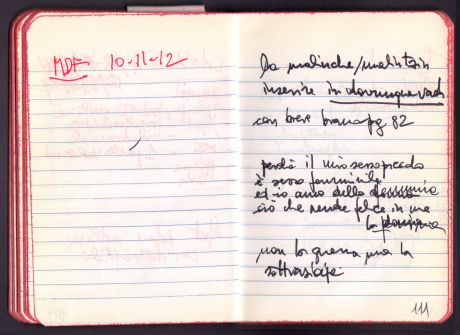 MDF 10-11-12
la malinche/malintzin
inserire in dovunque vada
con breve brano pg. 82
perché il mio sesso
è sesso femminile
ed io amo della
ciò che rende felice in me
la
non la guerra ma la
111